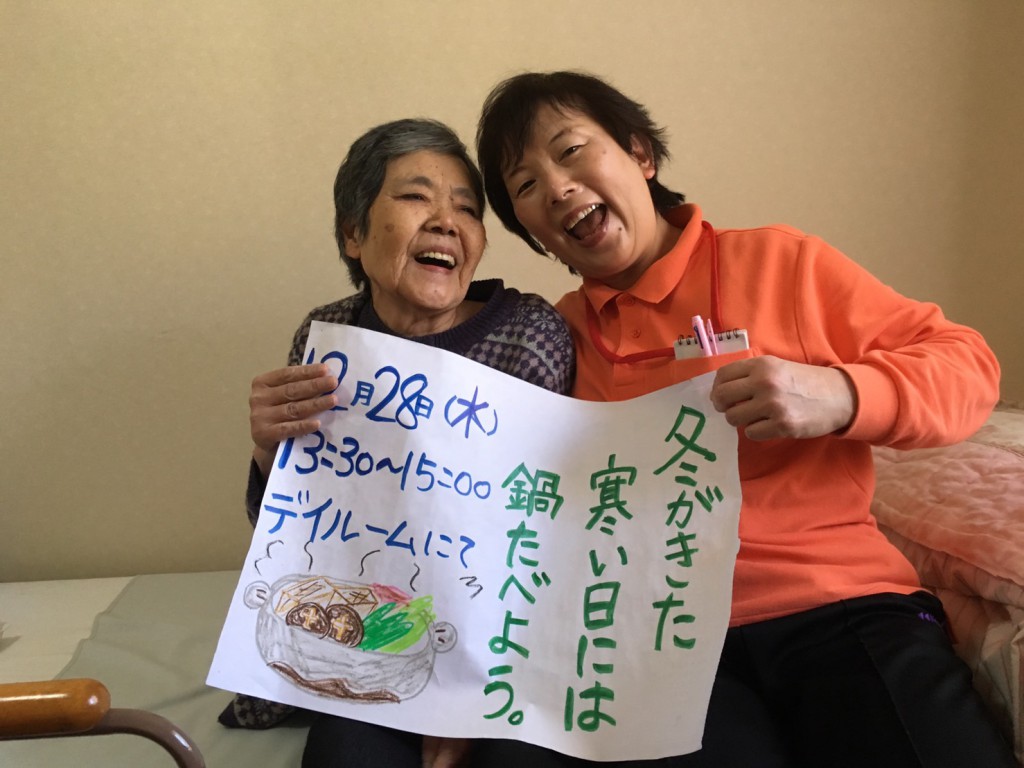 12月28日(水)
13:30～15:00
デイルームにて
冬がきた
寒い日には
鍋たべよう。